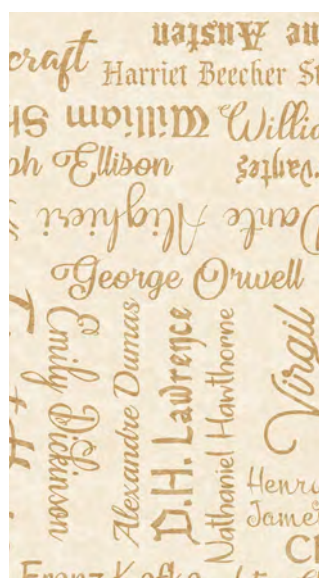 ne Austen
craft
Harriet Beecher St
William Sh
Willia
ph Ellison
vantes
Dante Alighieri
George Orwell
Emily Dickinson
Alexandre Dumas
D.H. Lawrence
Nathaniel Hawthorne
Virgil
Henry
James
Franz Kafka